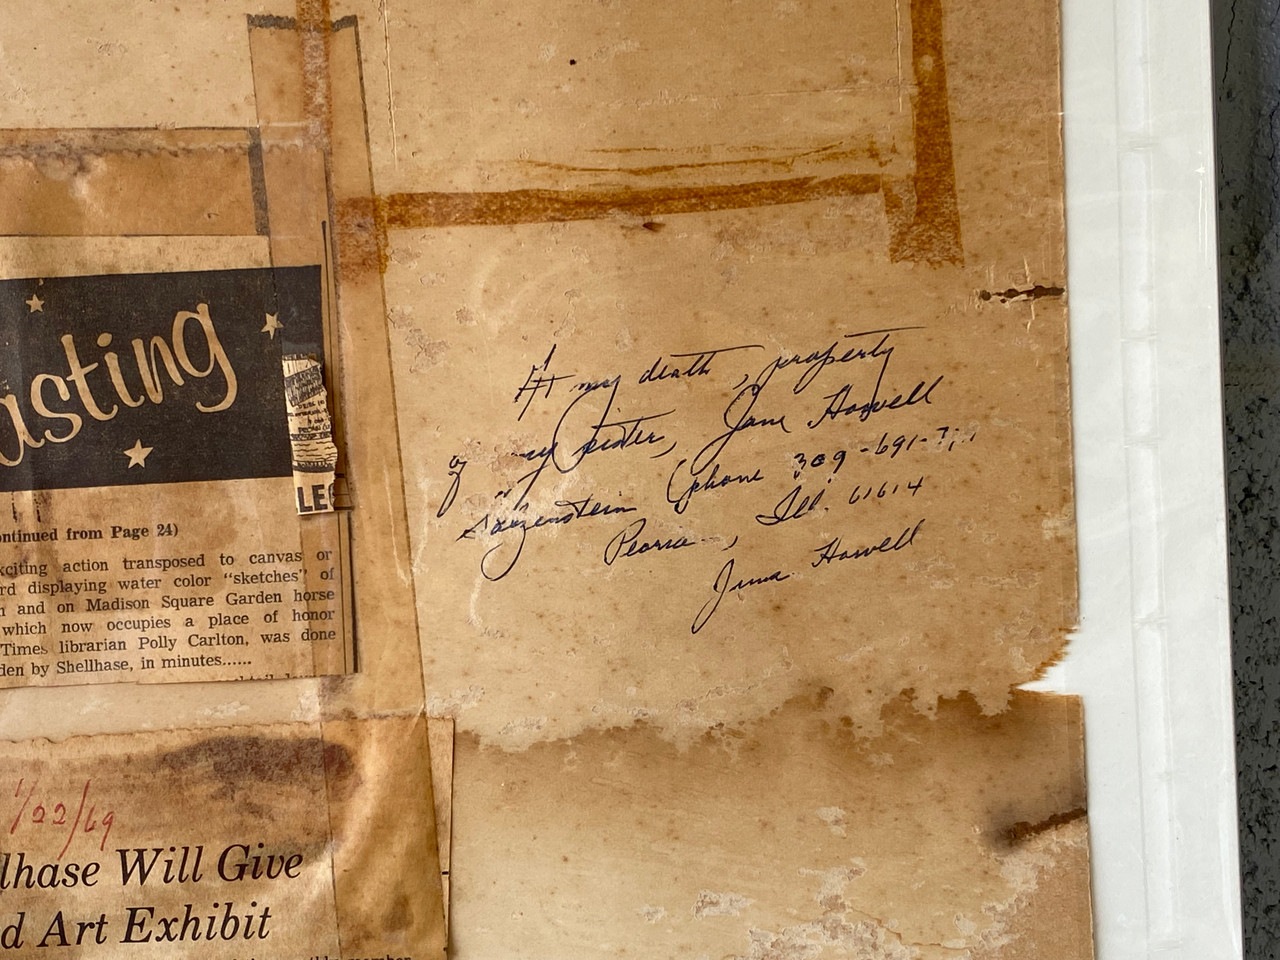 asting
LE
ontinued from Page 24)
xciting action transposed to canvas or
rd displaying water color "sketches" of
n and on Madison Square Garden horse
which now occupies a place of honor
Times librarian Polly Carlton, was done
den by Shellhase, in minutes......
At my death, property
of my sister, Jane Howell
(phone 309-691-
Peoria, Ill. 61614
Howell
1/22/69
lhase Will Give
d Art Exhibit